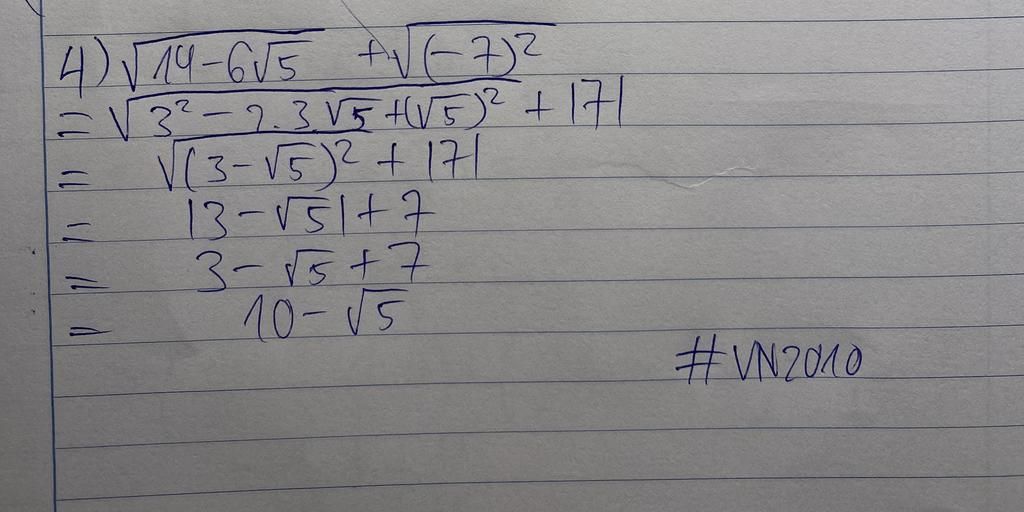 4) √(14-6√5) + √((-7)²)
= √(3² - 2.3√5 + (√5)²) + |7|
= √((3-√5)²) + |7|
= |3-√5| + 7
= 3 - √5 + 7
= 10 - √5
#VN2010